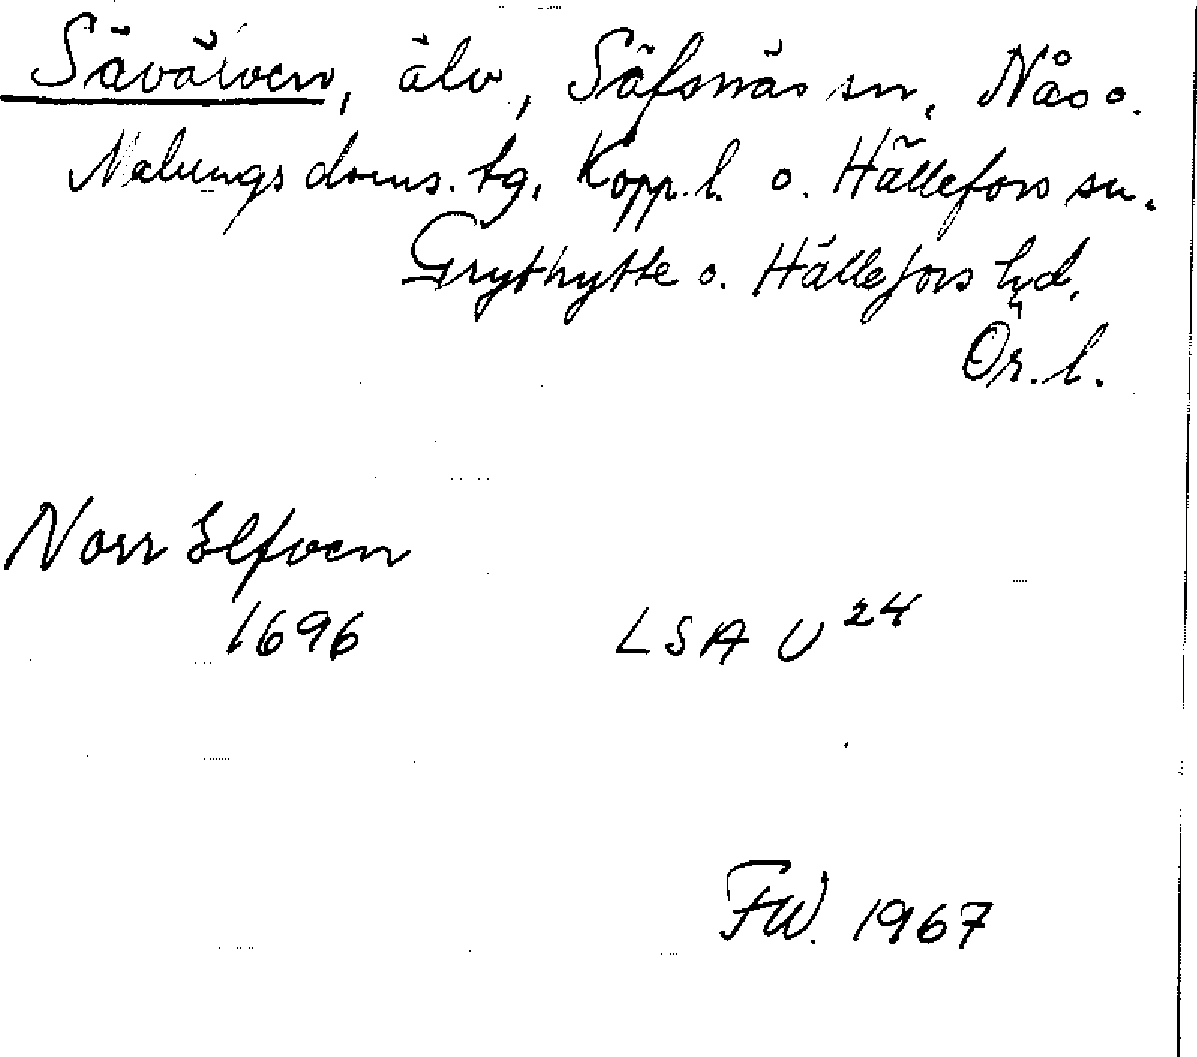 Sävälven, älv, Säfsnäs sn, Nås o.
Malungs doms. tg, Kopp. l. o. Hällefors sn.
Grythytte o. Hällefors hd,
Ör. l.
Norr Elfven
1696 LSA U 24
FW. 1967